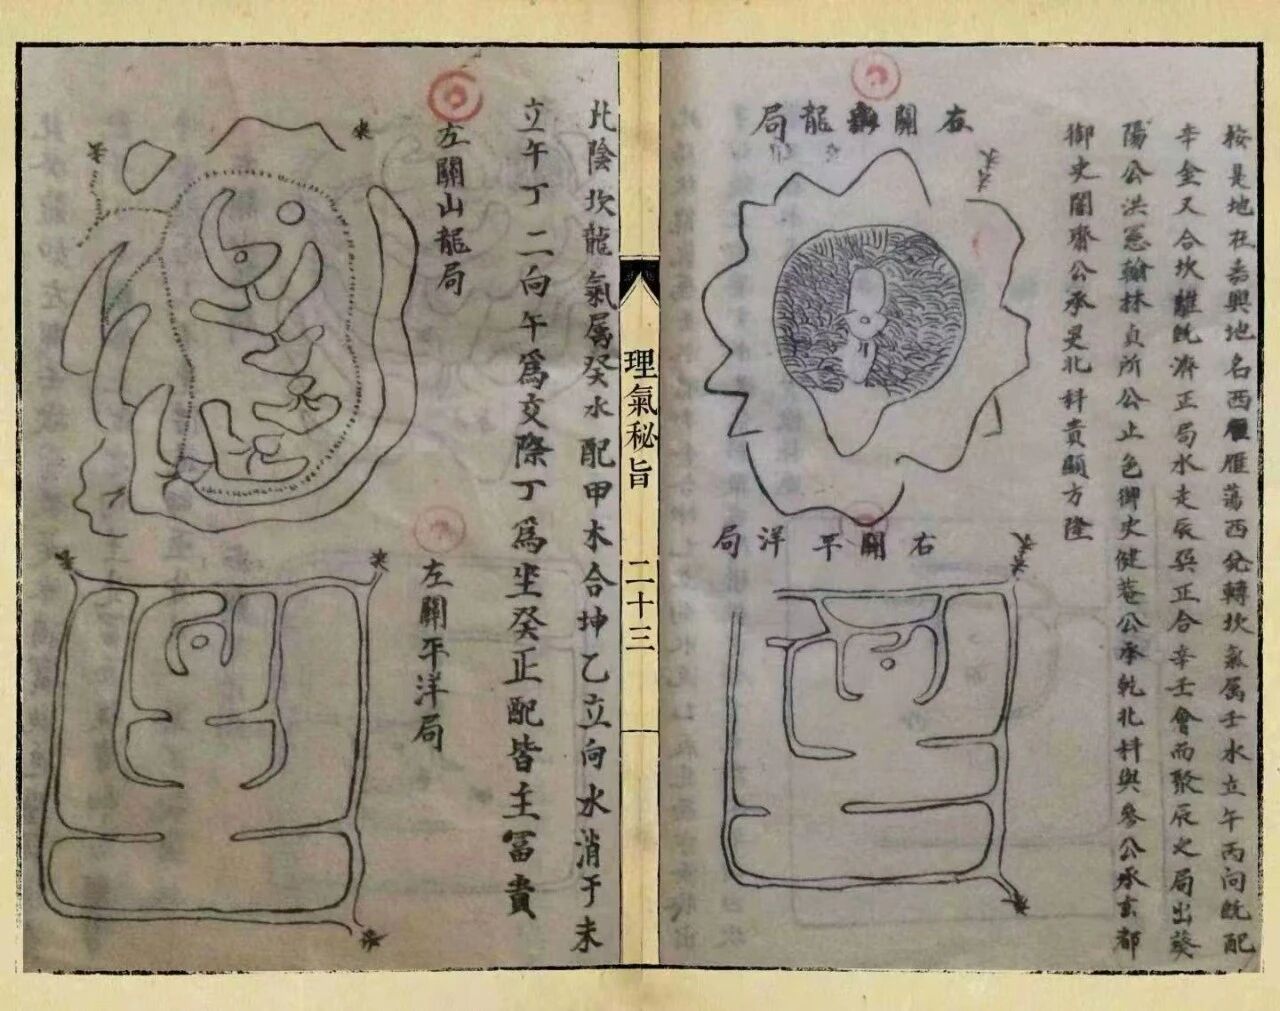 按是地在嘉興地名西雁雁蕩西兌轉坎氣属壬水立午丙向既配
辛金又合坎離既濟正局水走辰巽正合辛壬會而聚辰之局出葵
陽公洪憲翰林貞所公止色御史健菴公承乾北科與參公承玄都
御史闇齋公承昊北科貴顯方隆
右關龍局
右關平洋局
理氣秘旨
二十三
此陰坎龍氣属癸水配甲木合坤乙立向水消于未
立午丁二向午為交際丁為坐癸正配皆主冨貴
左關山龍局
左關平洋局
水
水
水
水